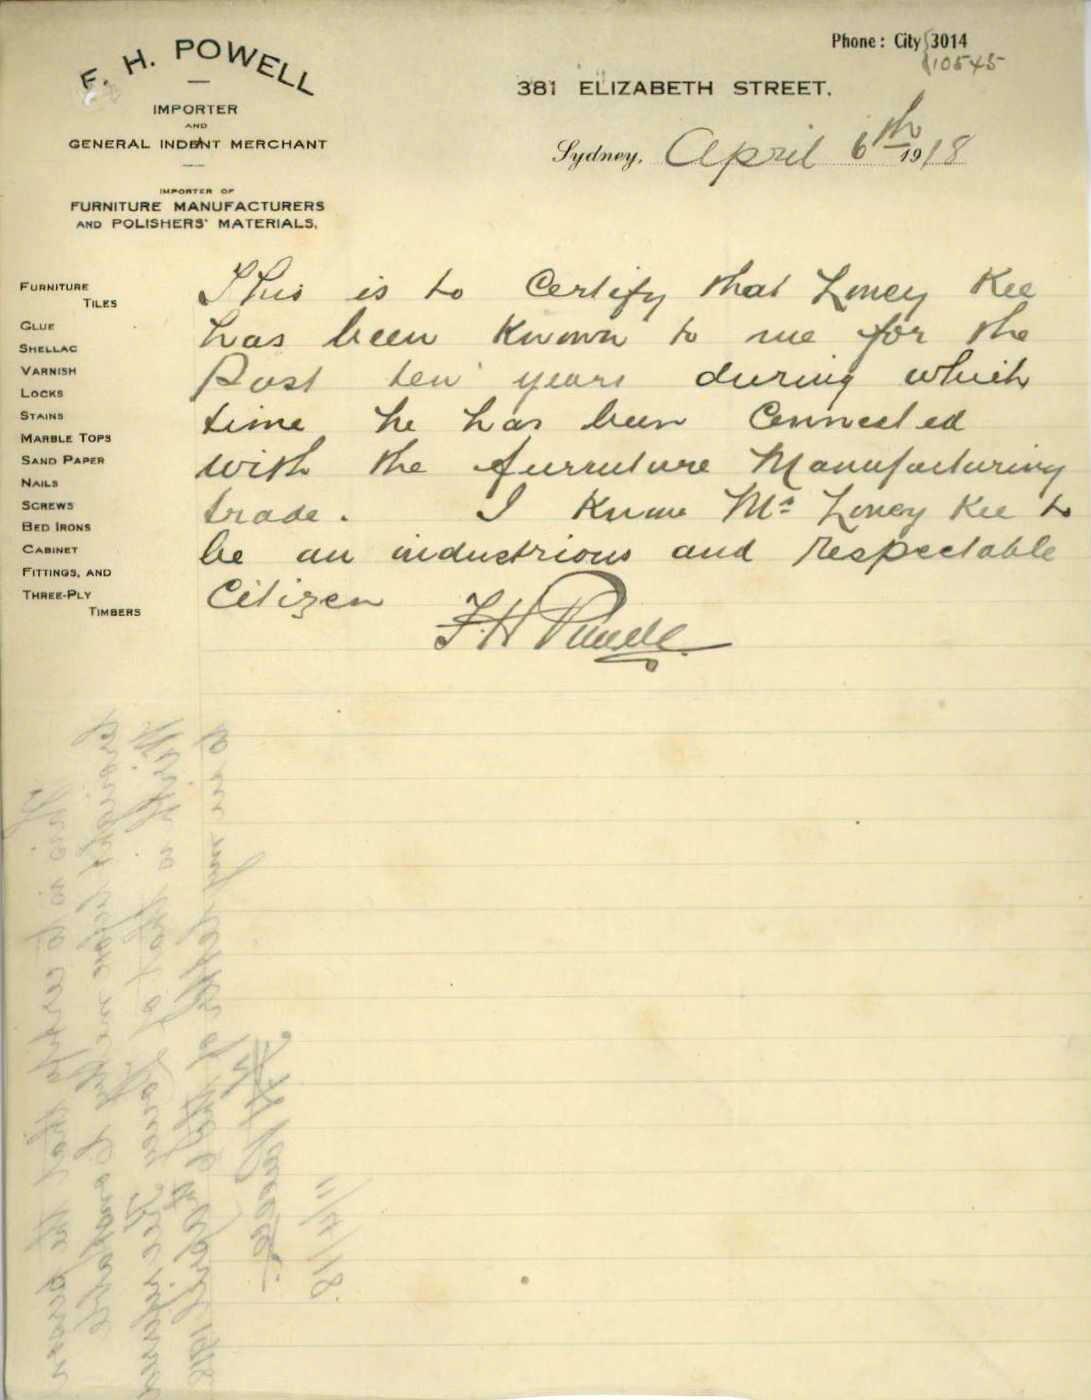 F. H. POWELL
IMPORTER
AND
GENERAL INDENT MERCHANT
IMPORTER OF
FURNITURE MANUFACTURERS
AND POLISHERS' MATERIALS.
Phone: City 3014
10545
381 ELIZABETH STREET.
Sydney, April 6th 1918
FURNITURE
TILES
GLUE
SHELLAC
VARNISH
LOCKS
STAINS
MARBLE TOPS
SAND PAPER
NAILS
SCREWS
BED IRONS
CABINET
FITTINGS, AND
THREE-PLY
TIMBERS
This is to Certify that Loney Kee
has been Known to me for the
Past ten years during which
time he has been Connected
with the furniture Manufacturing
trade. I Know Mr Loney Kee to
be an industrious and respectable
Citizen
F. H Powell